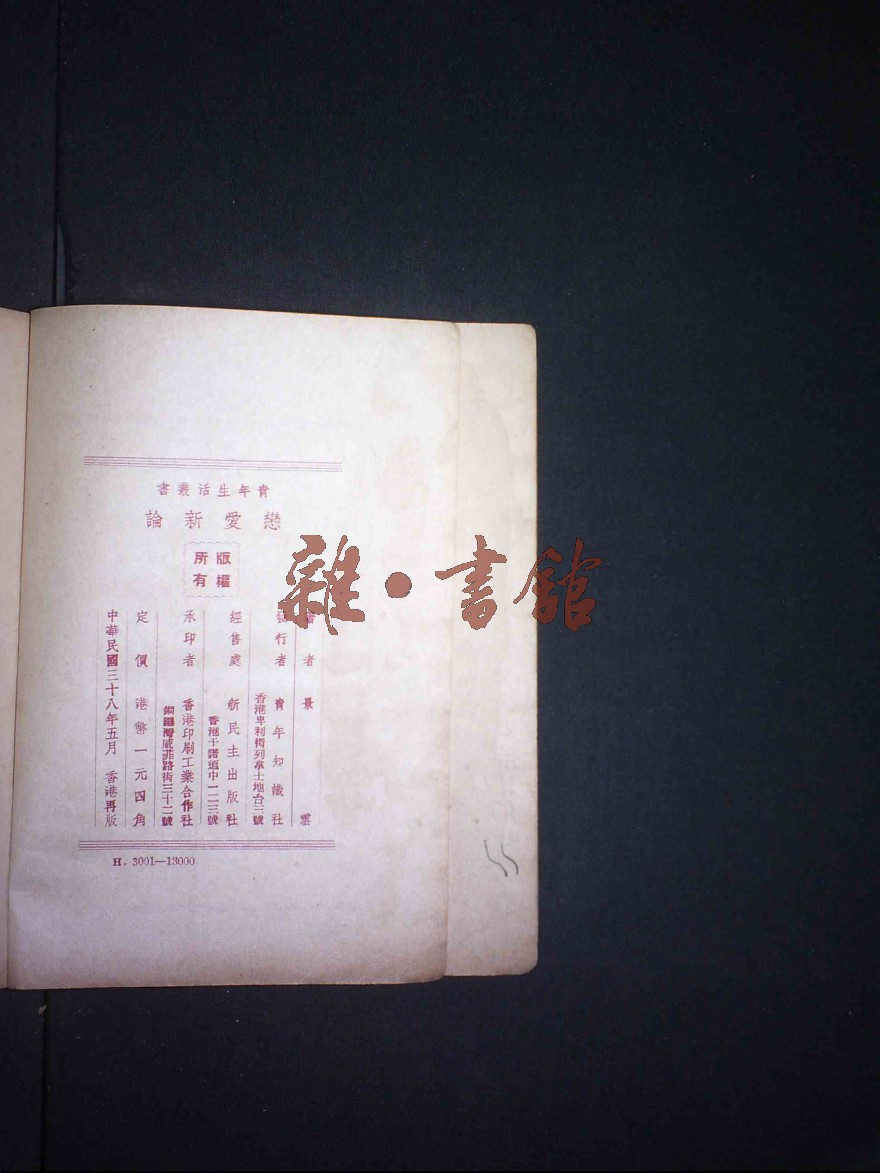 青年生活叢書
戀愛新論
版權
所有
著者 景雲
發行者 青年知識社
香港卑利街列拿士地台三號
經售處 新民主出版社
香港干諾道中一二三號
承印者 香港印刷工業合作社
銅鑼灣威菲路街三十二號
定價 港幣一元四角
中華民國三十八年五月 香港再版
H. 3001—13000
雜·書館